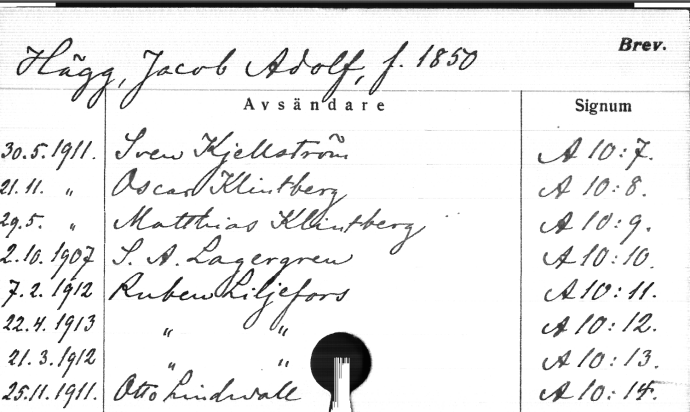 Brev.
Hägg, Jacob Adolf, f. 1850
Avsändare Signum
30.5.1911. Sven Kjellström A 10:7.
21.11. „ Oscar Klintberg A 10:8.
29.5. „ Matthias Klintberg A 10:9.
2.10.1907 S. A. Lagergren A 10:10.
7.2.1912 Ruben Liljefors A 10:11.
22.4.1913 „ „ A 10:12.
21.3.1912 „ „ A 10:13.
25.11.1911. Otto Lindwall A 10:14.